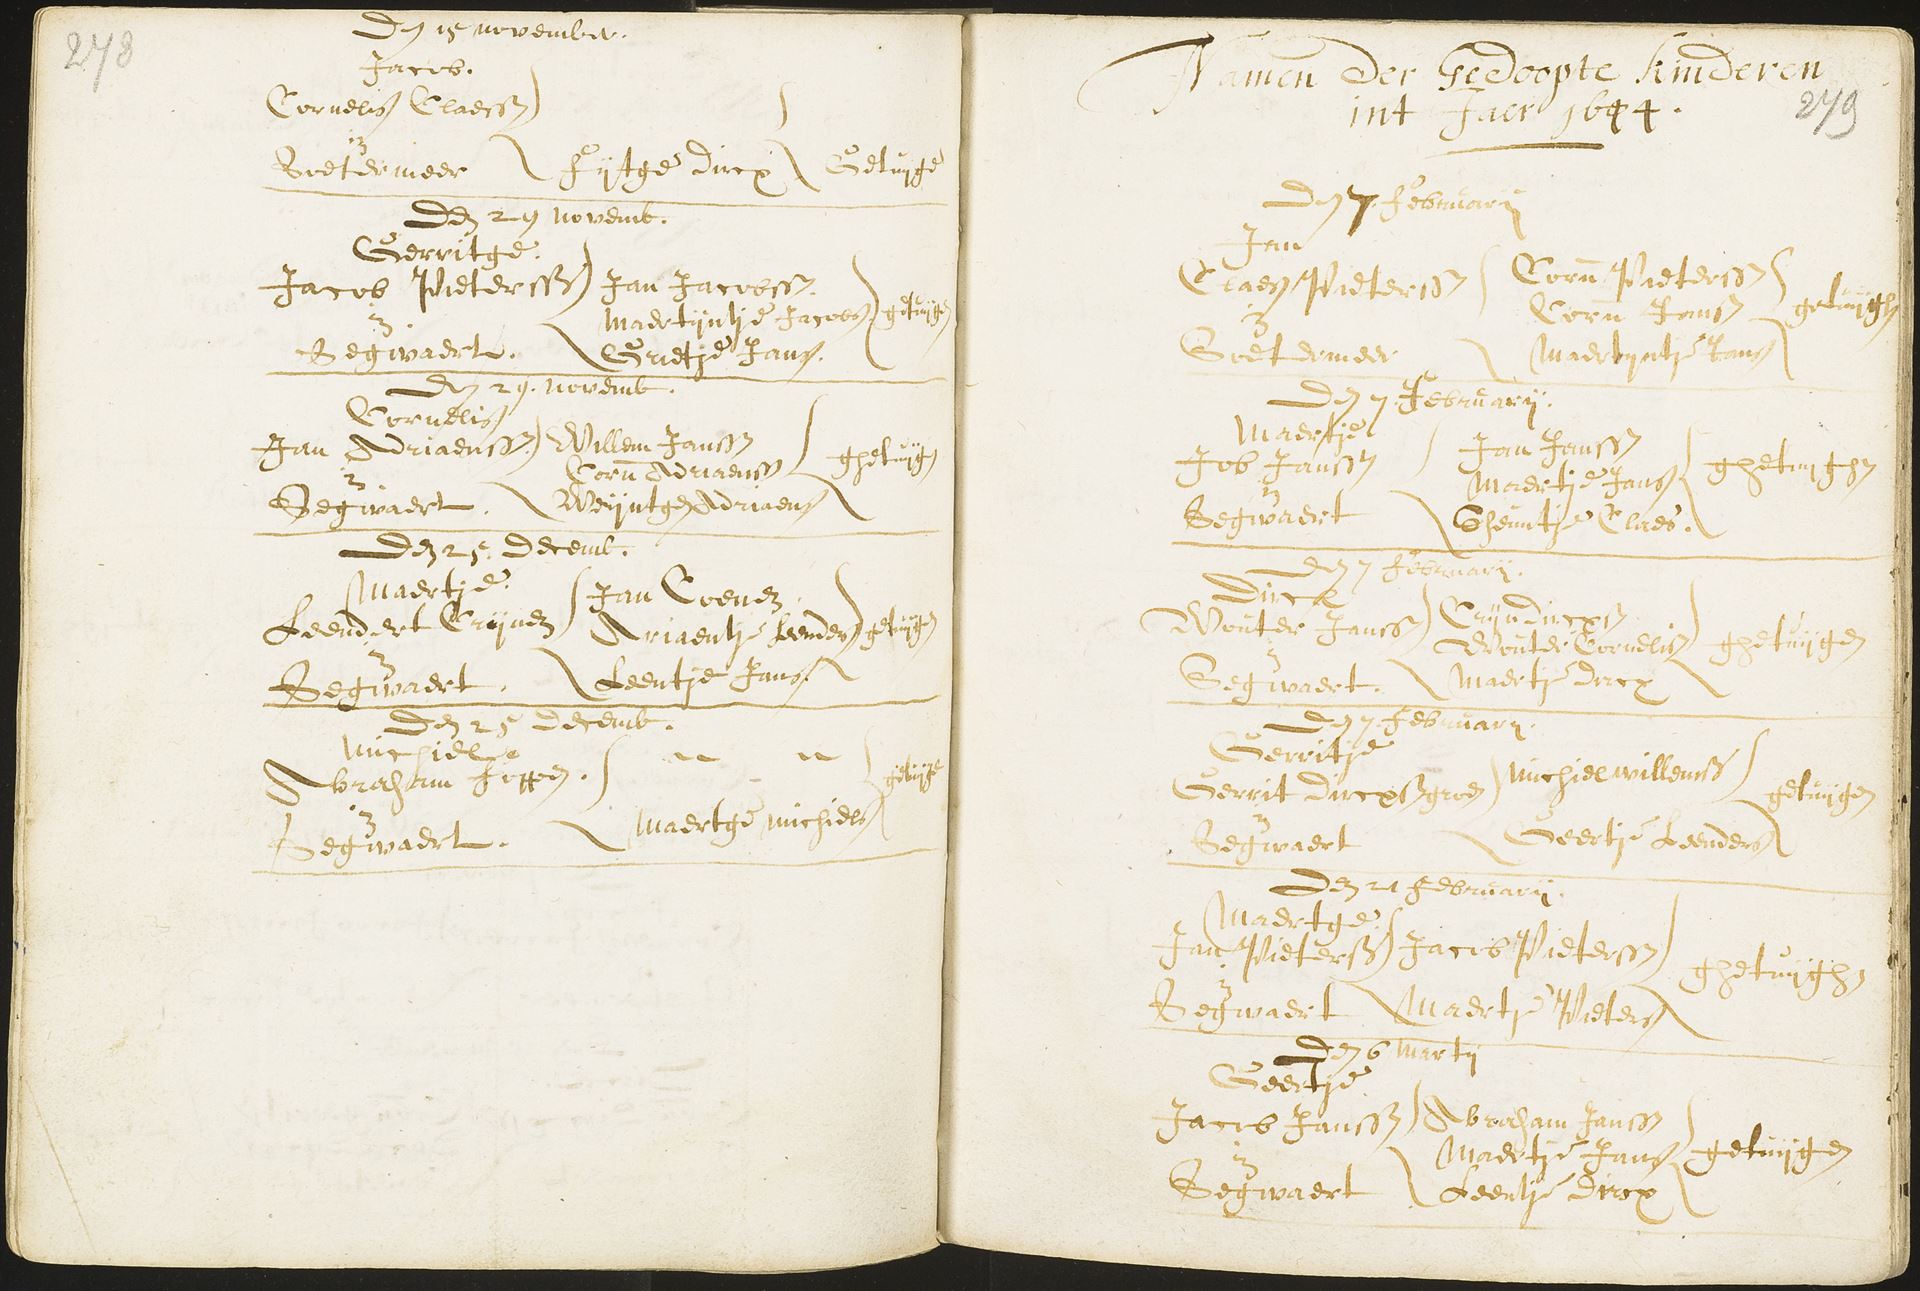 278
Den 15 november.
Jacob.
Cornelis Claessz
in
Soetermeer Fijtge dircx Getuijge
Den 29 novemb.
Gerritge.
Jacob Pieterssz Jan Jacobssz.
Maertijntje Jacobs getuijgen
in
Segwaert. Grietje Jans.
Den 29. novemb.
Cornelis
Jan Adriaenssz Willem Janssz
Corn Adriaenssz ghetuijgen
in
Segwaert. Weijntgen Adriaens
Den 25. decemb.
Maertje.
Leendert Crijnen Jan Coenen.
Ariaentje Leenders getuijgen
in
Segwaert. Leentje Jans.
Den 25 decemb.
Michiel.
Abraham Joppen. getuijge
in
Segwaert. Maertge Michiels
Namen der Gedoopte kinderen
int Jaer 1644.
279
Den 7 February
Jan
Claes Pieterssz Corn Pieterssz
Corn Jansz getuijghen
in
Soetermeer Maertijntje Jans
Den 7. February.
Maertje
Job Janssz Jan Janssz
Maertje Jans ghetuijghen
in
Segwaert Theuntje Claes.
Den 7 February.
Dirck
Wouter Janssz Crijn dircxsz
Wouter Cornelisz ghetuijgen
in
Segwaert. Maertje dircx
Den 7. February.
Gerritje
Gerrit dircxsz groen Michiel willemssz getuijgen
in
Segwaert Geertje Leenders
Den 21 February.
Maertge.
Jan Pieterssz Jacob Pieterssz ghetuijghen
in
Segwaert Maertje Pieters
Den 6 Martij
Geertje
Jacob Janssz Abraham Janssz
Maertje Jans getuijgen
in
Segwaert Leentje dircx